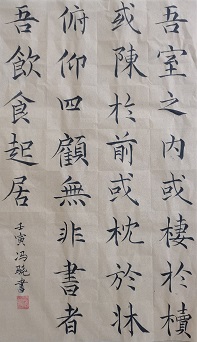 吾室之內或棲於櫝
或陳於前或枕於牀
俯仰四顧無非書者
吾飲食起居
壬寅冯晓書